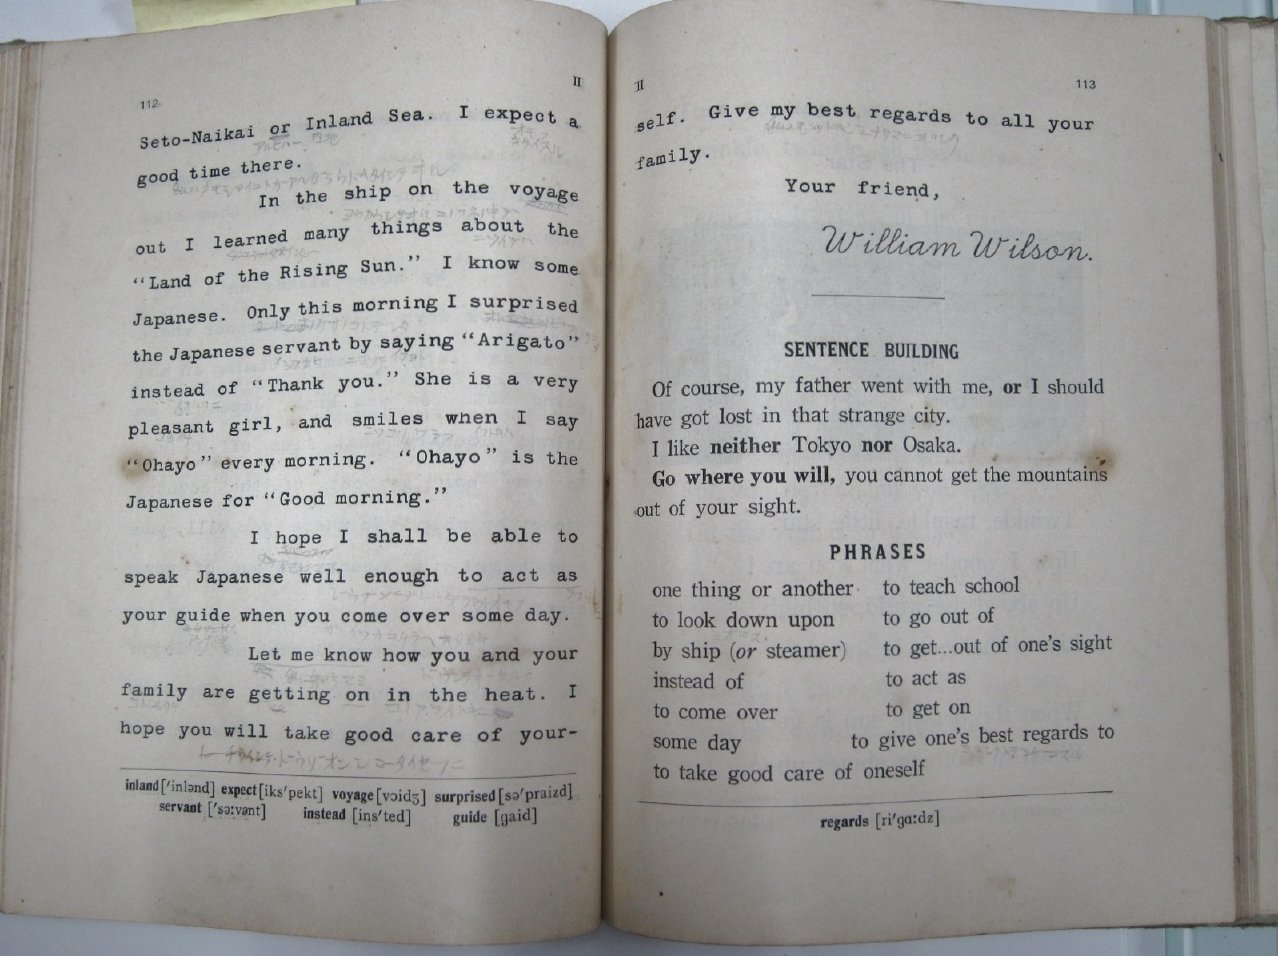 112
II
Seto-Naikai or Inland Sea. I expect a
good time there.
In the ship on the voyage
out I learned many things about the
“Land of the Rising Sun.” I know some
Japanese. Only this morning I surprised
the Japanese servant by saying “Arigato”
instead of “Thank you.” She is a very
pleasant girl, and smiles when I say
“Ohayo” every morning. “Ohayo” is the
Japanese for “Good morning.”
I hope I shall be able to
speak Japanese well enough to act as
your guide when you come over some day.
Let me know how you and your
family are getting on in the heat. I
hope you will take good care of your-
inland ['inlənd] expect [iks'pekt] voyage [vɔidʒ] surprised [sə'praizd]
servant ['sə:vənt] instead [ins'ted] guide [gaid]
II
113
self. Give my best regards to all your
family.
Your friend,
William Wilson.
SENTENCE BUILDING
Of course, my father went with me, or I should
have got lost in that strange city.
I like neither Tokyo nor Osaka.
Go where you will, you cannot get the mountains
out of your sight.
PHRASES
one thing or another to teach school
to look down upon to go out of
by ship (or steamer) to get...out of one's sight
instead of to act as
to come over to get on
some day to give one's best regards to
to take good care of oneself
regards [ri'gɑ:dz]